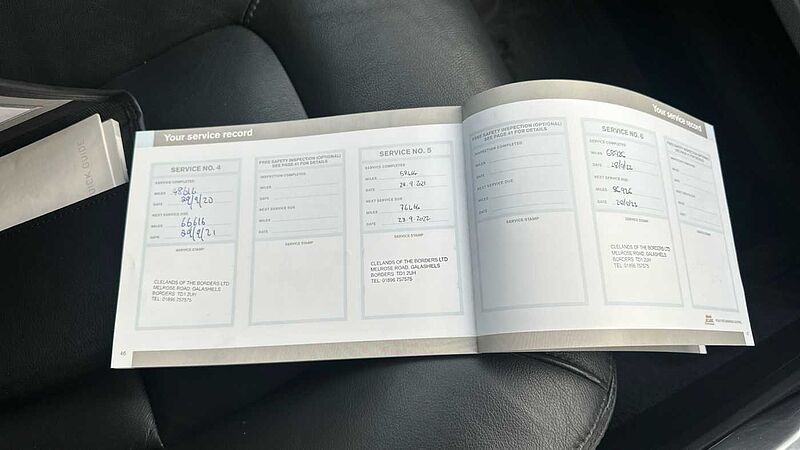 QUICK GUIDE
Your service record
SERVICE NO. 4
SERVICE COMPLETED
MILES 48616
DATE 29/9/20
NEXT SERVICE DUE
MILES 66616
DATE
SERVICE STAMP
CLELANDS OF THE BORDERS LTD
MELROSE ROAD, GALASHIELS
BORDERS TD1 2UH
TEL: 01896 757575
46
FREE SAFETY INSPECTION (OPTIONAL)
SEE PAGE 41 FOR DETAILS
INSPECTION COMPLETED
MILES
DATE
NEXT SERVICE DUE
MILES
DATE
SERVICE STAMP
SERVICE NO. 5
SERVICE COMPLETED
MILES
DATE
NEXT SERVICE DUE
MILES 76646
DATE 23.9.2022
SERVICE STAMP
CLELANDS OF THE BORDERS LTD
MELROSE ROAD, GALASHIELS
BORDERS TD1 2UH
TEL: 01896 757575
Your service record
FREE SAFETY INSPECTION (OPTIONAL)
SEE PAGE 41 FOR DETAILS
INSPECTION COMPLETED
MILES
DATE
NEXT SERVICE DUE
MILES
DATE
SERVICE STAMP
SERVICE NO. 6
SERVICE COMPLETED
MILES
DATE
NEXT SERVICE DUE
MILES
DATE
SERVICE STAMP
CLELANDS OF THE BORDERS LTD
MELROSE ROAD, GALASHIELS
BORDERS TD1 2UH
TEL: 01896 757575
MILES
DATE
MILES
DATE